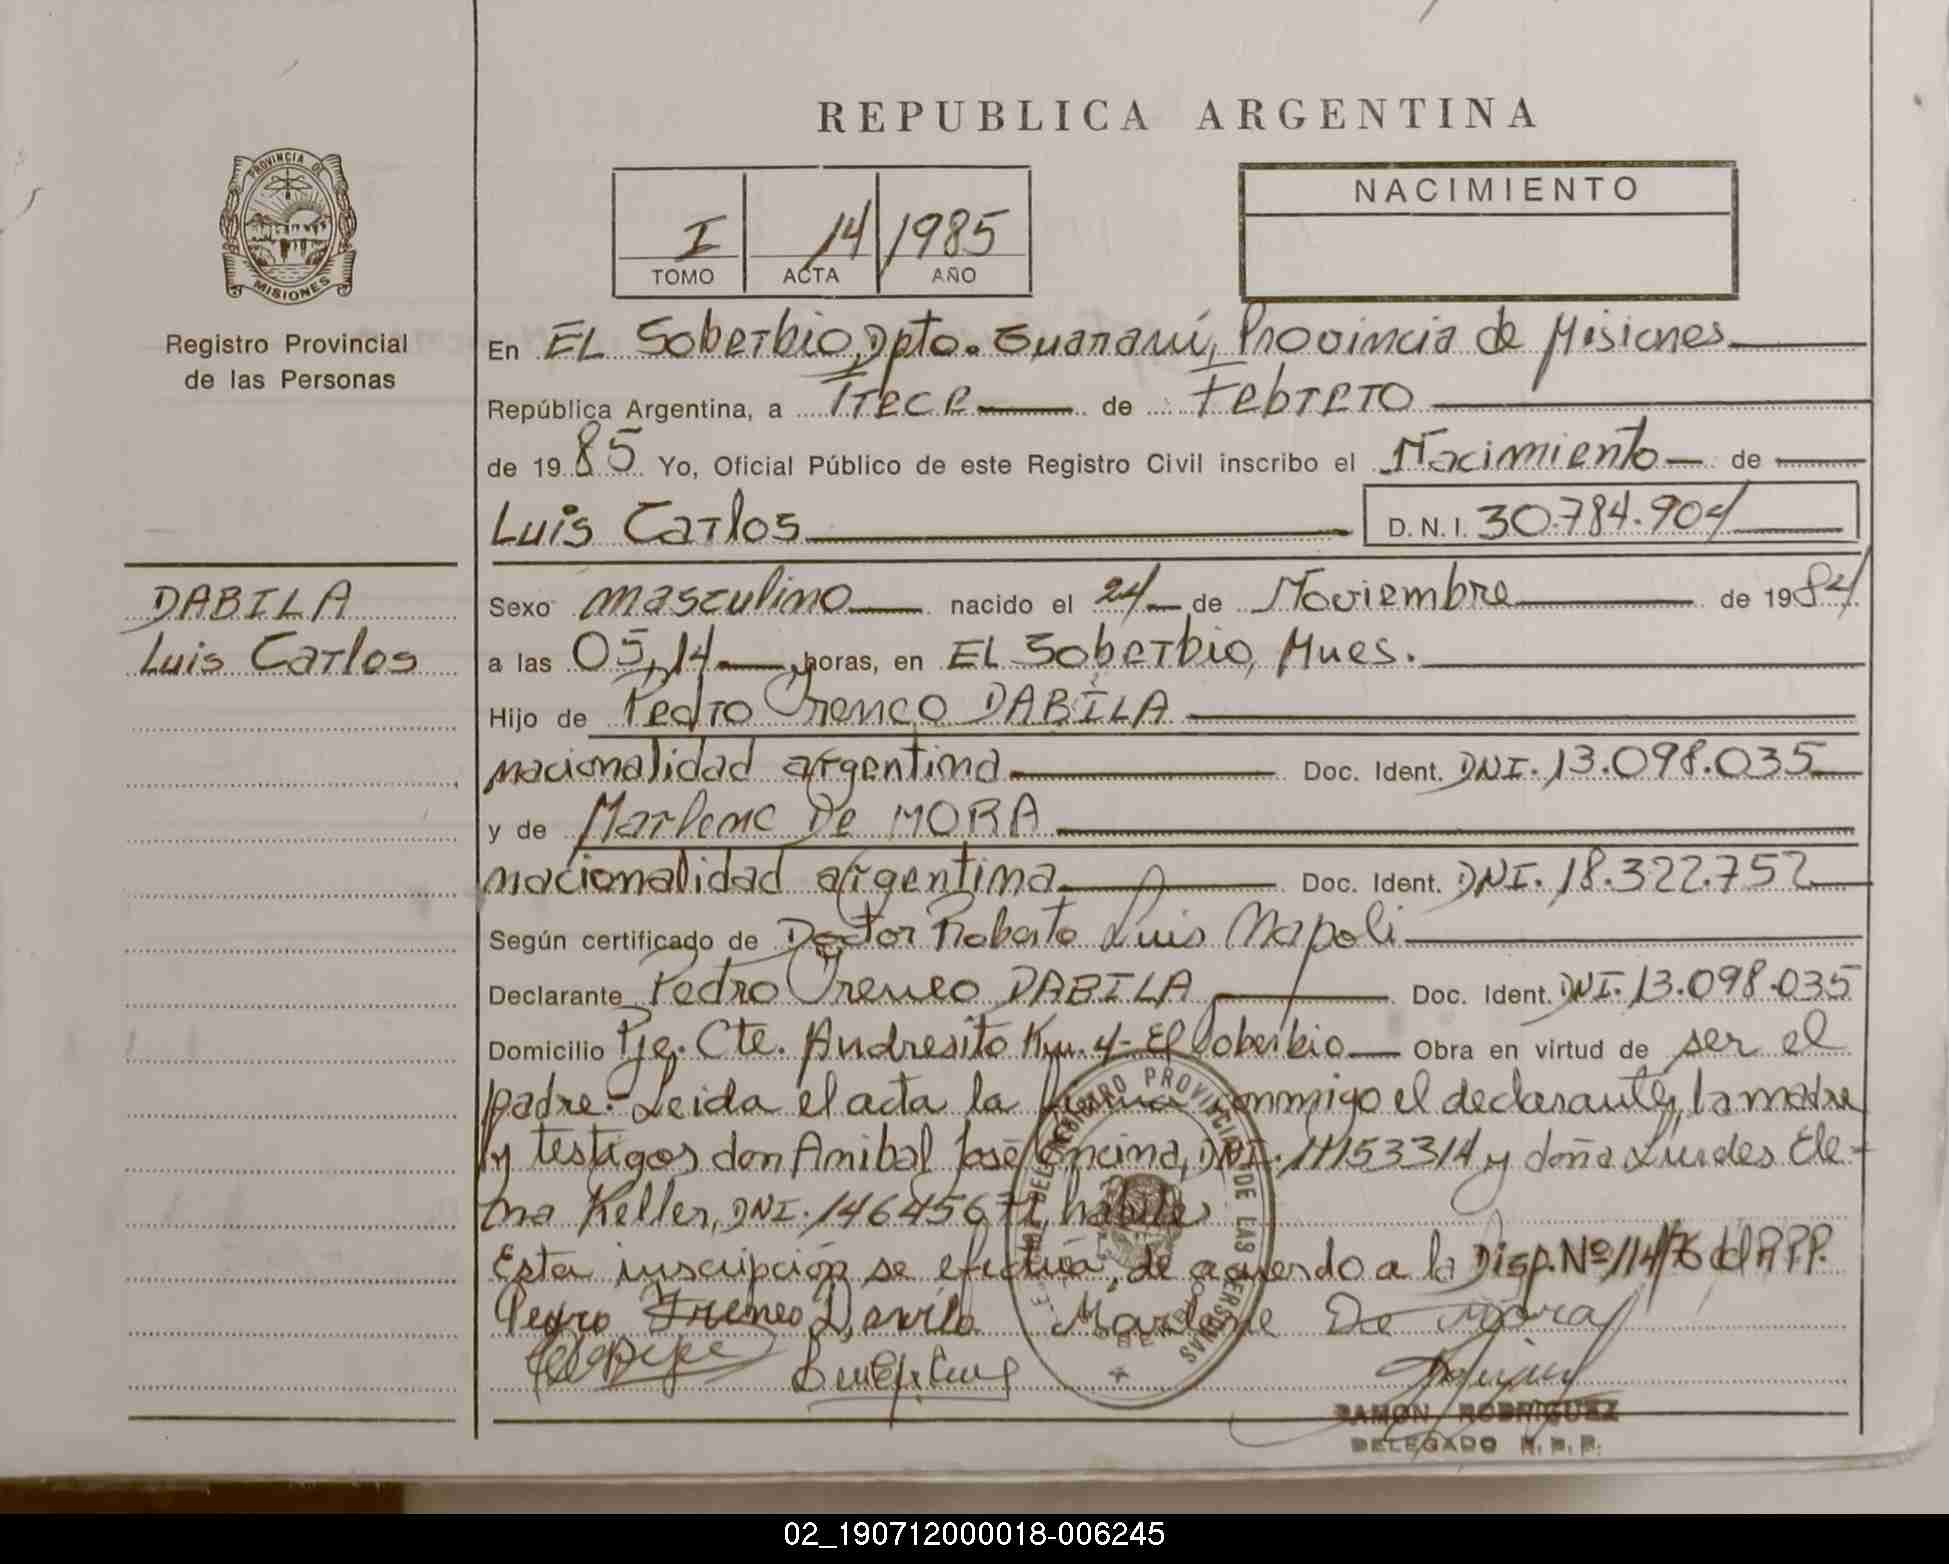 REPUBLICA ARGENTINA
PROVINCIA DE
MISIONES
Registro Provincial
de las Personas
I 14 1985
TOMO ACTA AÑO
NACIMIENTO
En EL Soberbio, Dpto. Guaraní, Provincia de Misiones
República Argentina, a Trece de Febrero
de 1985 Yo, Oficial Público de este Registro Civil inscribo el Nacimiento de
Luis Carlos D.N.I. 30.784.904
DABILA
Luis Carlos
Sexo masculino nacido el 24 de Noviembre de 1984
a las 05,14 horas, en EL Soberbio, Mnes.
Hijo de Pedro Ireneo DABILA
nacionalidad argentina Doc. Ident. DNI. 13.098.035
y de Marlene De MORA
nacionalidad argentina Doc. Ident. DNI. 18.322.752
Según certificado de Doctor Roberto Luis Napoli
Declarante Pedro Ireneo DABILA Doc. Ident. DNI. 13.098.035
Domicilio Pje. Cte. Andresito Km. 4- El Soberbio Obra en virtud de ser el
padre.- Leida el acta la firma conmigo el declarante, la madre
y testigos don Anibal José Encina, DNI. 14153314 y doña Lurdes Ele-
na Keller, DNI. 14645671, habiles
Esta inscripción se efectúa, de acuerdo a la Disp. Nº 114/76 del R.P.P.
Pedro Ireneo Davila Marlene De Mora
REGISTRO PROVINCIAL DE LAS PERSONAS
RAMON RODRIGUEZ
DELEGADO R.P.P.
02_190712000018-006245